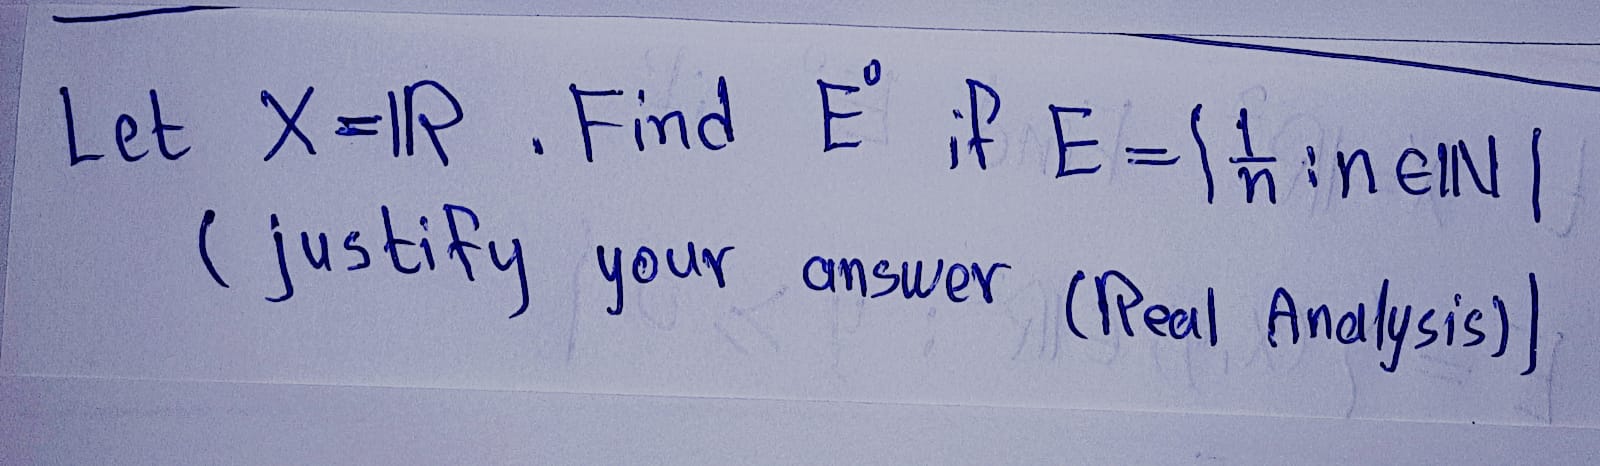 Let X=ℝ . Find E⁰ if E={1/n : n∈ℕ}
( justify your answer (Real Analysis))